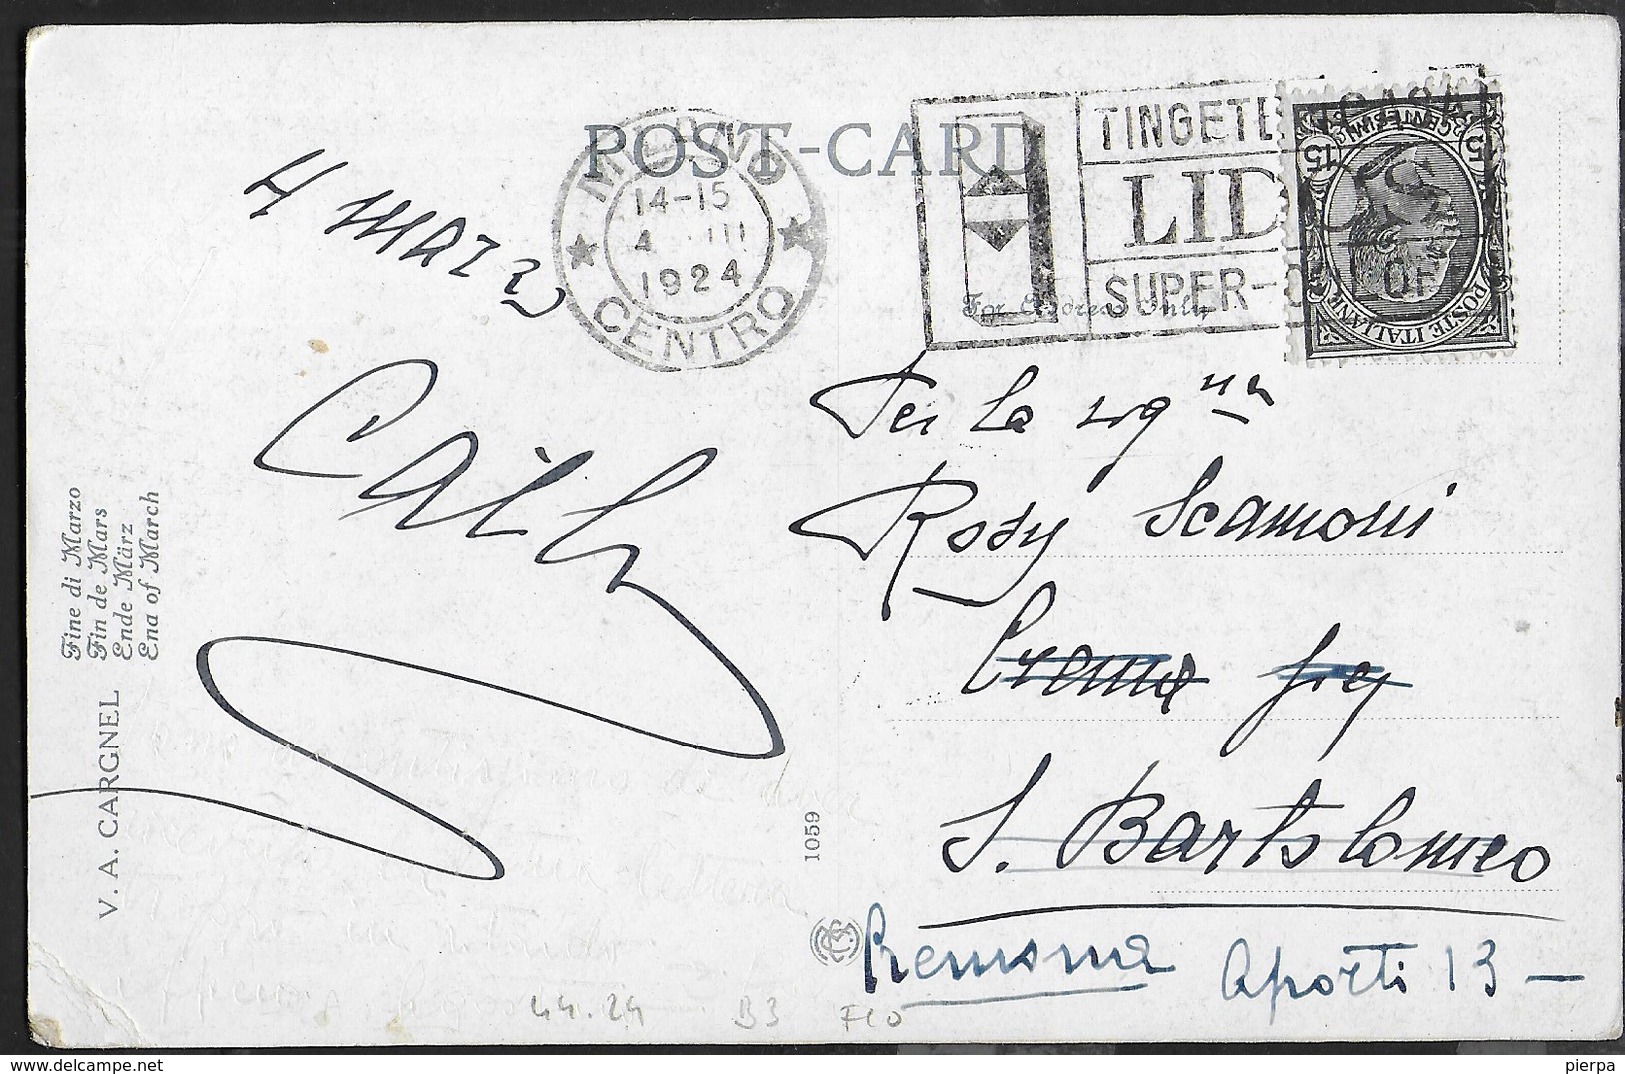 POST-CARD
MILANO
14-15
4 III
1924
CENTRO
TINGETE
LID
SUPER-
OF
CENTESIMI
15
15
POSTE ITALIANE
For Adress Only
4 MARZ
Per la sig.na
Rosy Scamoni
Crema
S. Bartolomeo
Cremona Aporti 13 —
Fine di Marzo
Fin de Mars
Ende März
Ena of March
V. A. CARGNEL
1059
44.24
B3
F10
pierpa